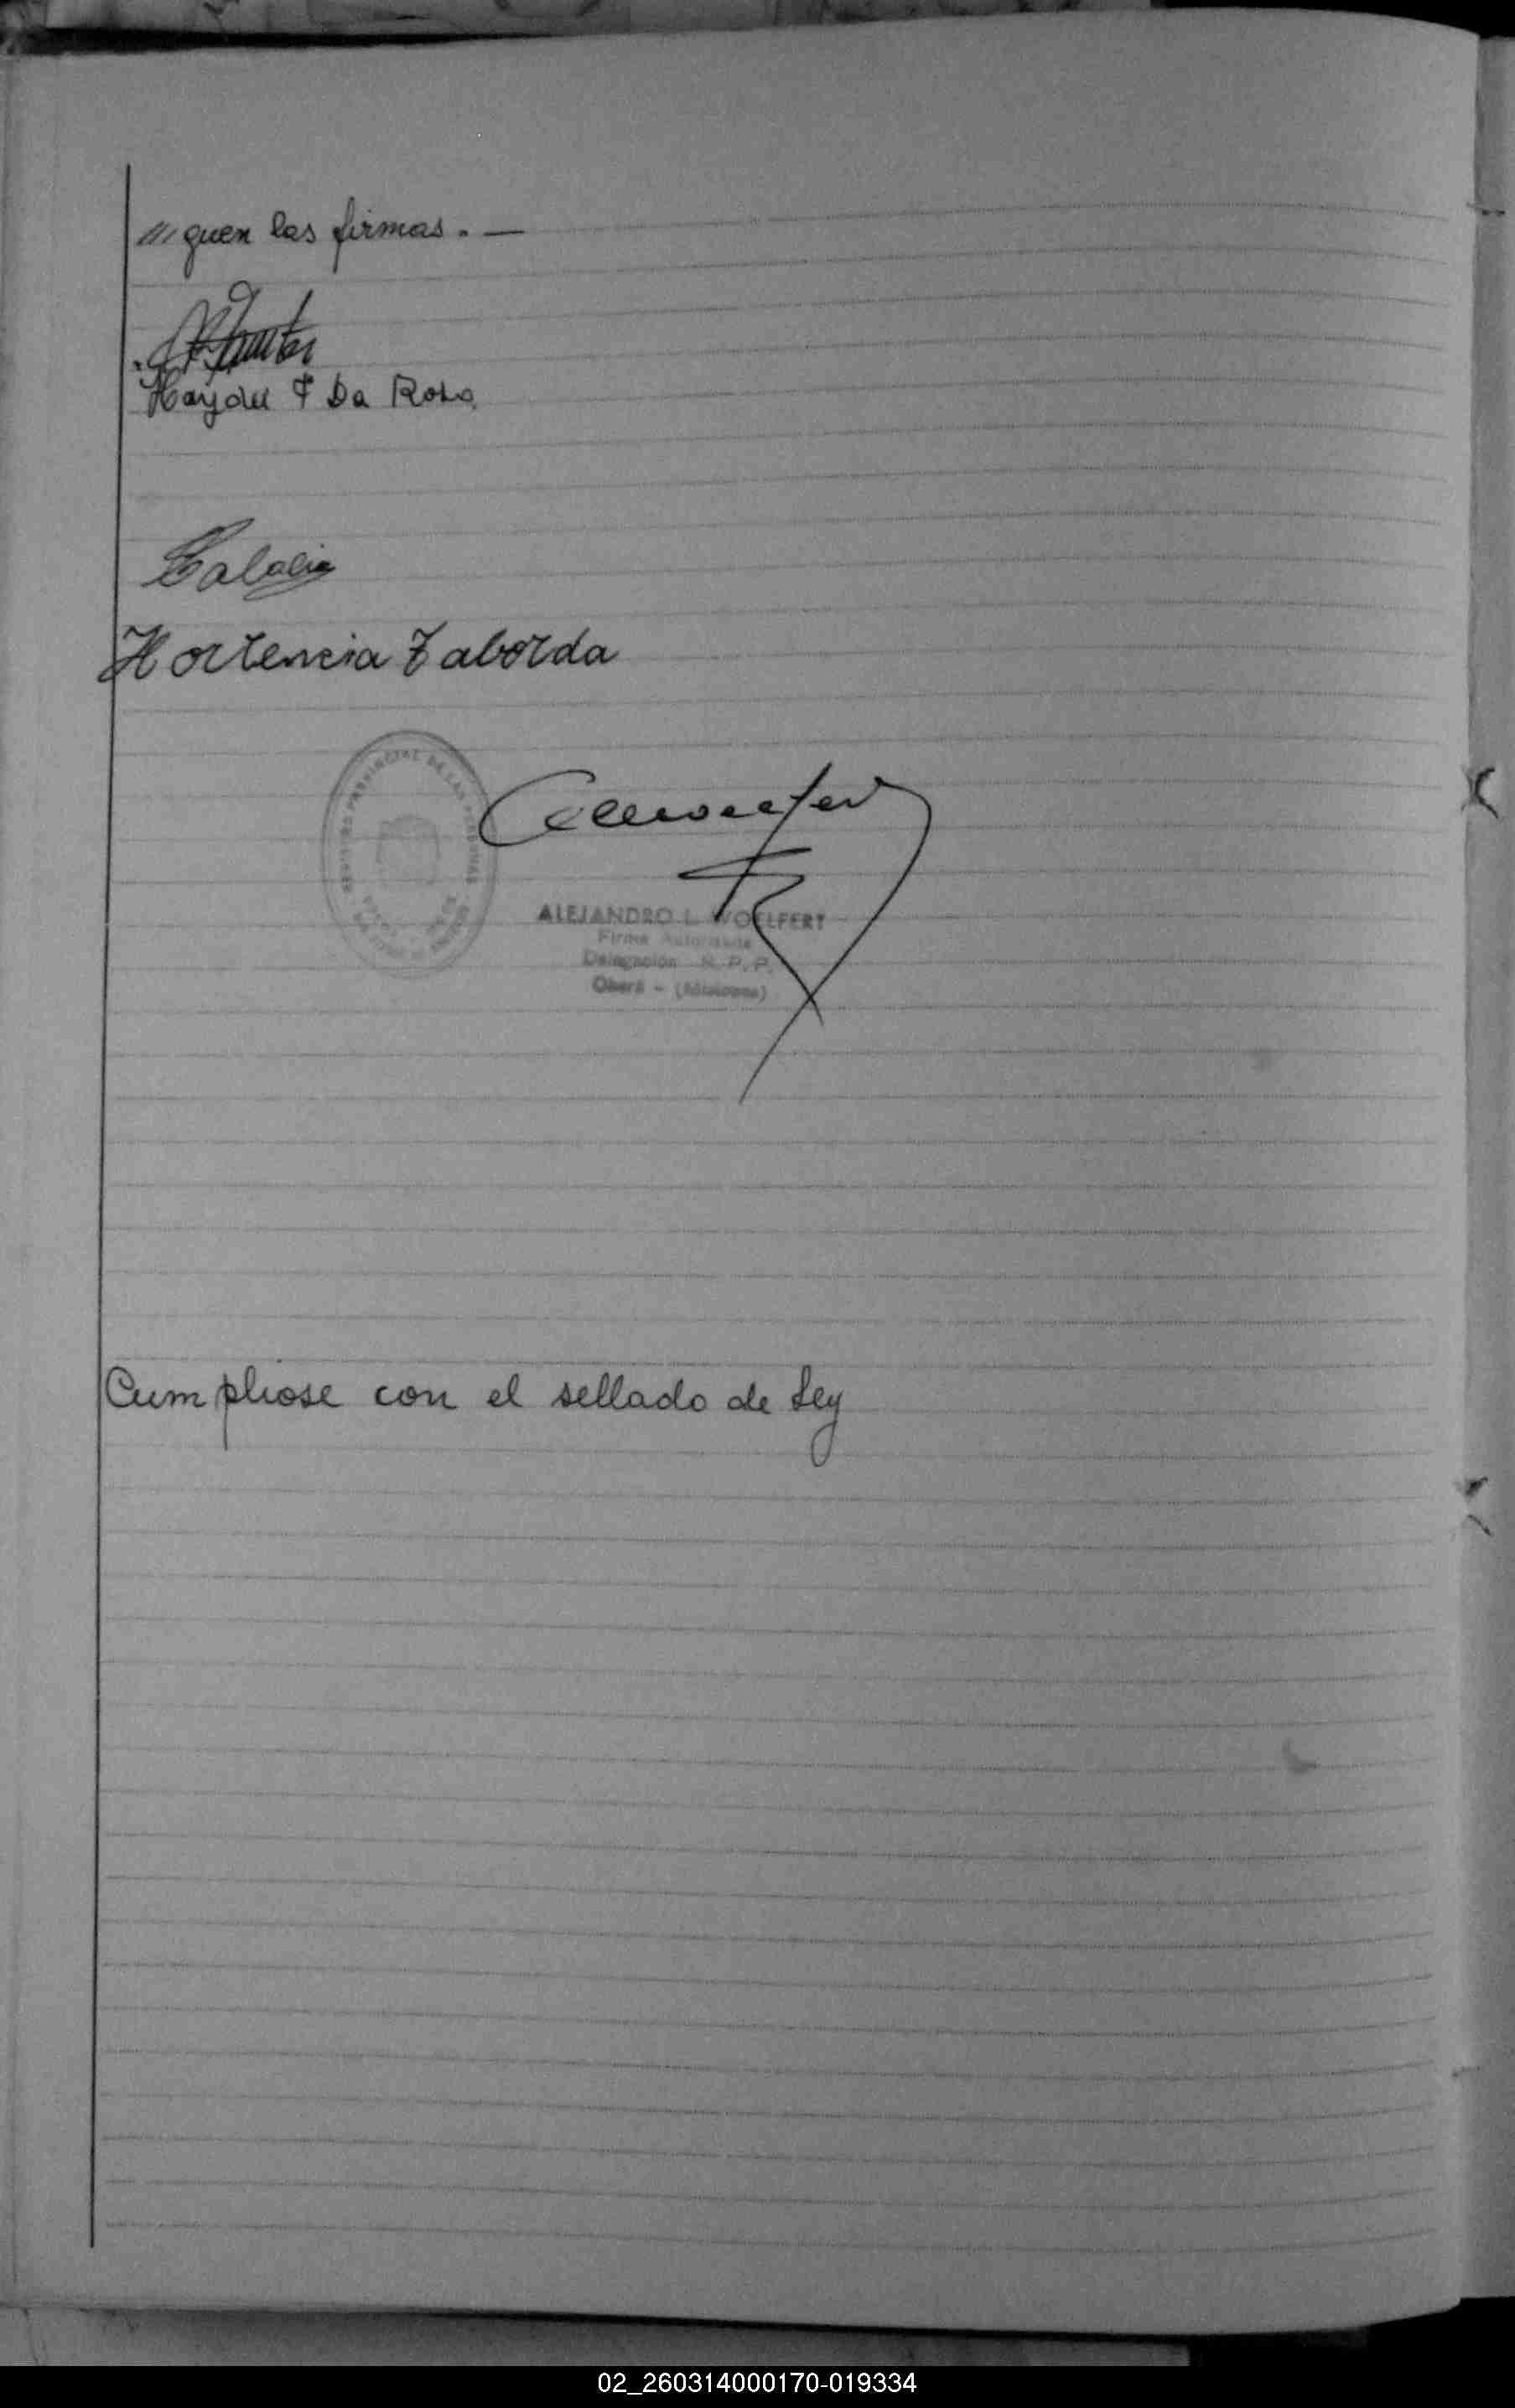 ///guen las firmas. —
Haydee F Da Rosa
Hortencia Taborda
REGISTRO PROVINCIAL DE LAS PERSONAS
ALEJANDRO L. WOELFERT
Firma Autorizada
Delegación R. P. P.
Oberá - (Misiones)
Cumpliose con el sellado de Ley
02_260314000170-019334